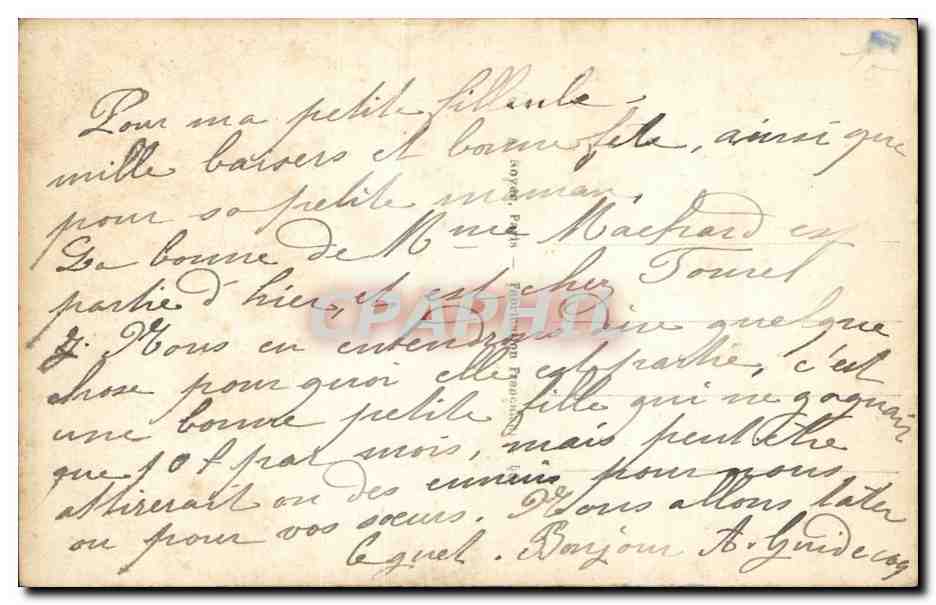 Pour ma petite filleule.
mille baisers et bonne fête, ainsi que
pour sa petite maman.
La bonne de Mme Machard est
partie d'hier, et est chez Tourel
Nous en entendrons dire quelque
chose pourquoi elle est partie, c'est
une bonne petite fille qui ne gagnait
que 10f par mois, mais peut être
attirerait on des ennuis pour nous
ou pour vos soeurs. Nous allons tater
le guet. Bonjour A. Guidecoq
Noyer, Paris — Fabrication Française
CPAPHIL